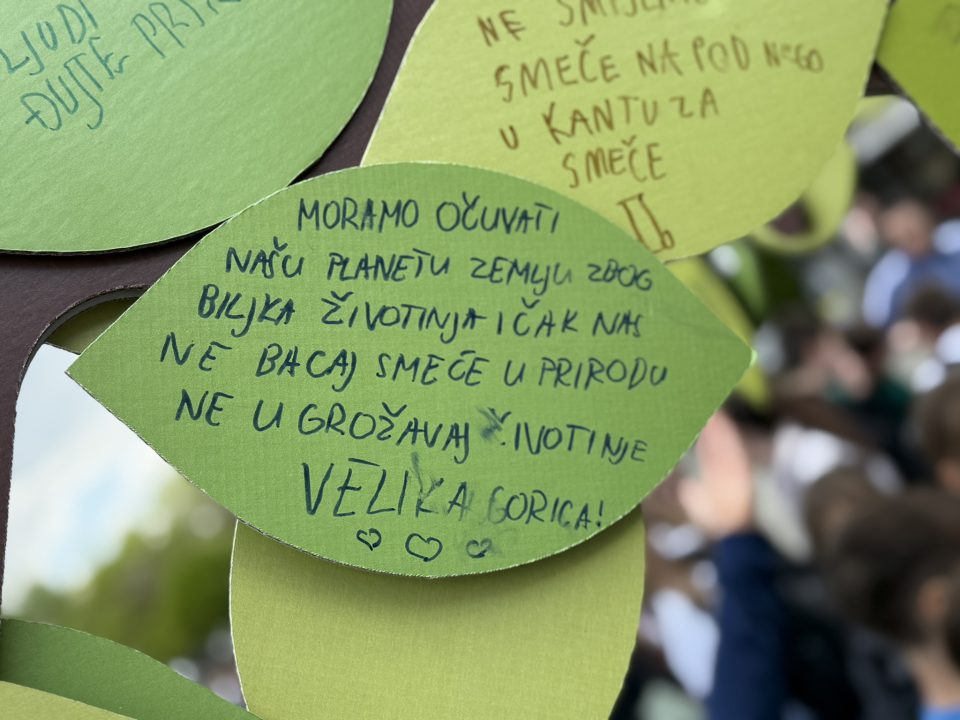 LJUDI
NE SMIJEMO
SMEČE NA POD NEGO
U KANTU ZA
SMEČE
MORAMO OČUVATI
NAŠU PLANETU ZEMLJU ZBOG
BILJKA ŽIVOTINJA I ČAK NAS
NE BACAJ SMEČE U PRIRODU
NE UGROŽAVAJ ŽIVOTINJE
VELIKA GORICA!